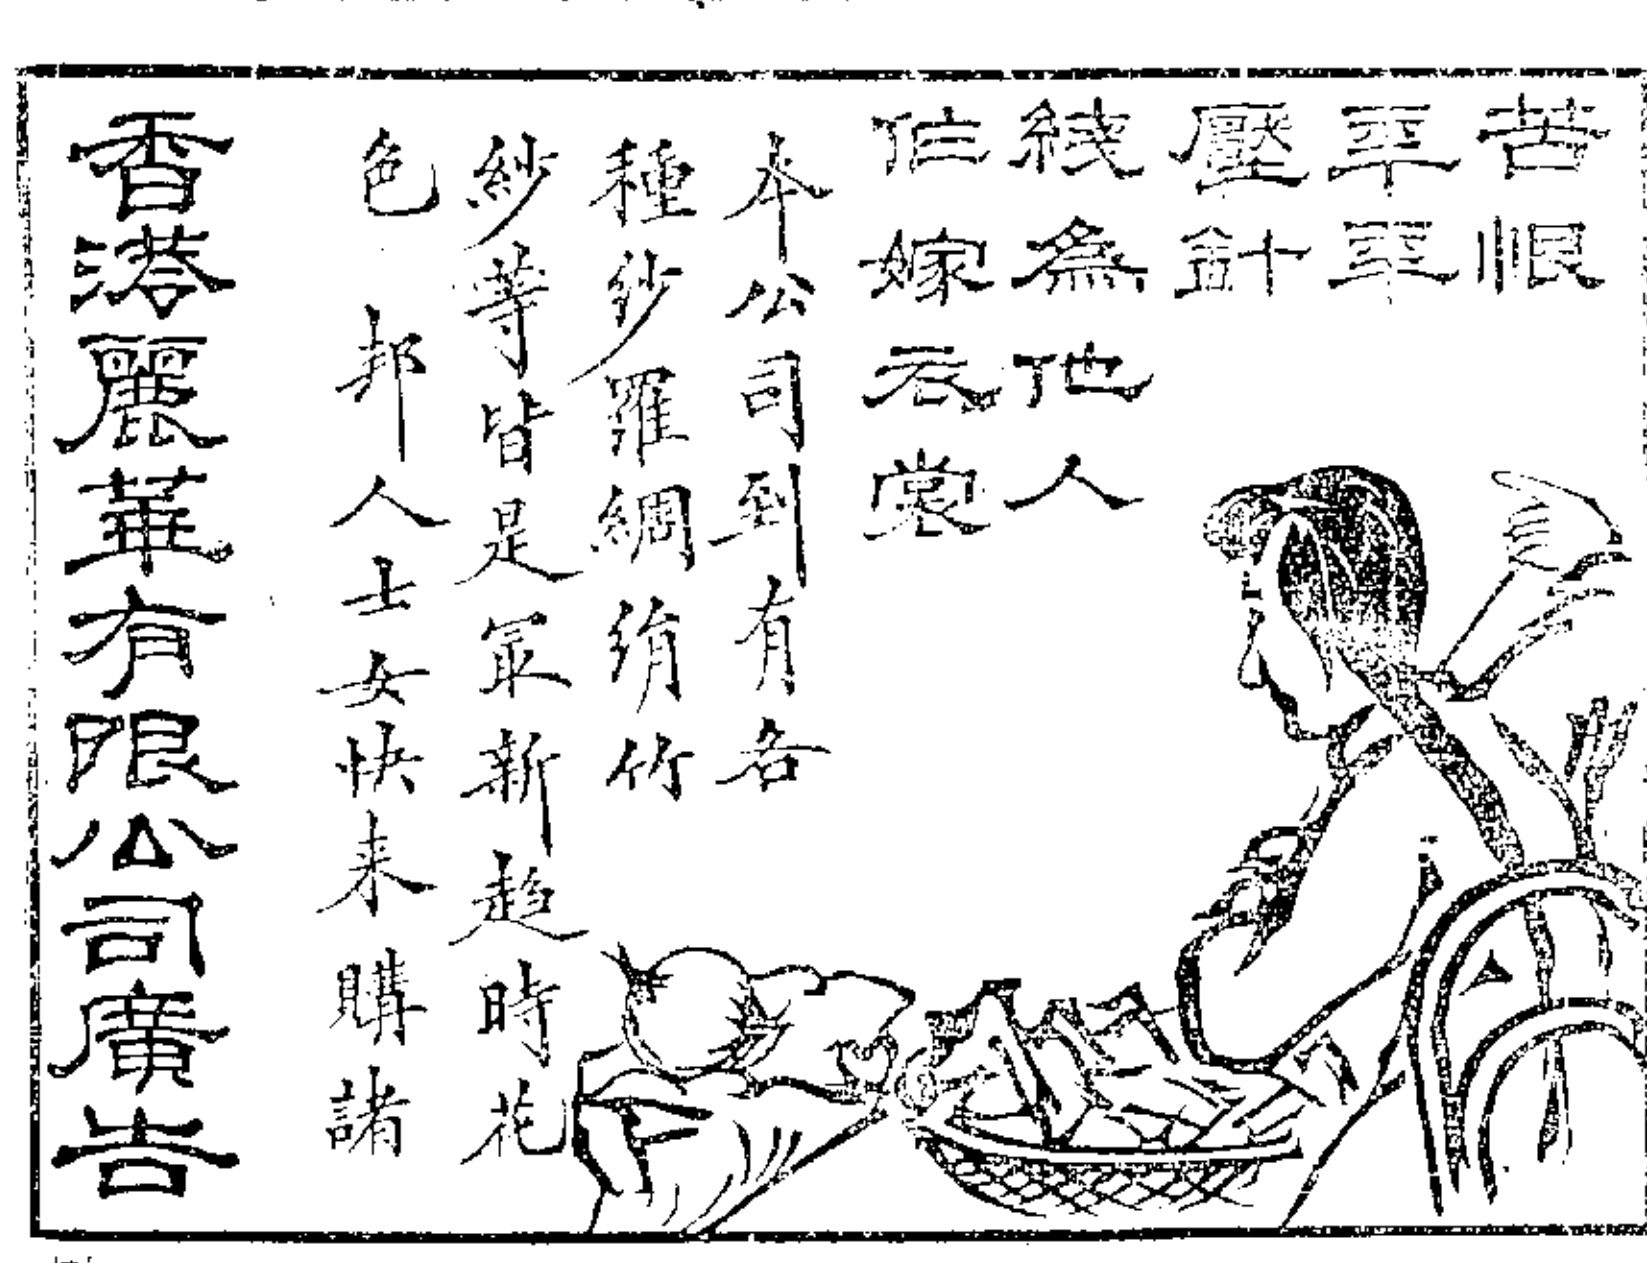 苦恨
年年
壓針
綫為他人
作嫁衣裳
本公司到有各
種紗羅綢絹竹
紗等皆是冣新趋時花
色 邦人士女快来購諸
香港麗華有限公司廣告